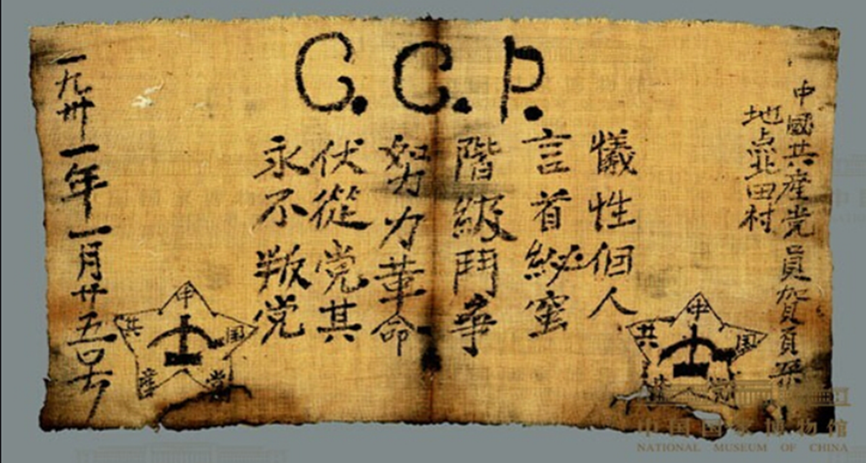 C.C.P.
中國共産党員賀頁朵
地点北田村
犧性個人
言首秘蜜
階級鬥爭
努力革命
伏從党其
永不叛党
一九卅一年一月廿五号
中国共産党
中国共産党
中国国家博物馆
NATIONAL MUSEUM OF CHINA